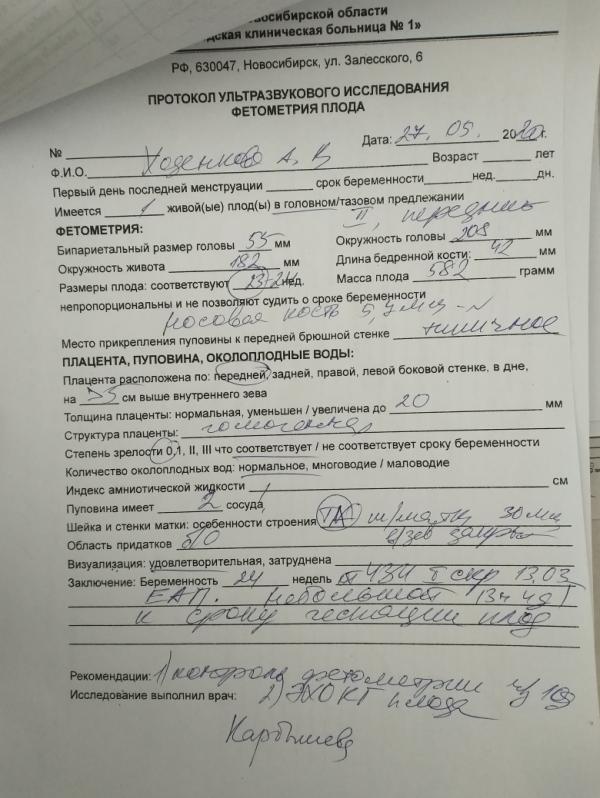 восибирской области
дская клиническая больница № 1»
РФ, 630047, Новосибирск, ул. Залесского, 6
ПРОТОКОЛ УЛЬТРАЗВУКОВОГО ИССЛЕДОВАНИЯ
ФЕТОМЕТРИЯ ПЛОДА
№ Дата: 27. 05. 2020г.
Ф.И.О. А. В Возраст лет
Первый день последней менструации срок беременности нед. дн.
Имеется 1 живой(ые) плод(ы) в головном/тазовом предлежании
II, передняя
ФЕТОМЕТРИЯ:
Бипариетальный размер головы 55 мм Окружность головы 208 мм
Окружность живота 182 мм Длина бедренной кости: 42 мм
Размеры плода: соответствуют 23-24 нед. Масса плода 582 грамм
непропорциональны и не позволяют судить о сроке беременности
Носовая кость мм - N
Место прикрепления пуповины к передней брюшной стенке типичное
ПЛАЦЕНТА, ПУПОВИНА, ОКОЛОПЛОДНЫЕ ВОДЫ:
Плацента расположена по: передней, задней, правой, левой боковой стенке, в дне,
на >5 см выше внутреннего зева
Толщина плаценты: нормальная, уменьшен / увеличена до 20 мм
Структура плаценты: гомогенная
Степень зрелости 0,1, II, III что соответствует / не соответствует сроку беременности
Количество околоплодных вод: нормальное, многоводие / маловодие
Индекс амниотической жидкости см
Пуповина имеет 2 сосуда
Шейка и стенки матки: особенности строения ТА ш/матки 30 мм
Область придатков б/о в/зев закрыт
Визуализация: удовлетворительная, затруднена
Заключение: Беременность 24 недель I скр 13.03
ЕАП. Небольшой 13н 4д)
к сроку гестации плод
Рекомендации: 1) контроль фетометрии ч/з 10д
Исследование выполнил врач: 2) ЭХОКГ плода